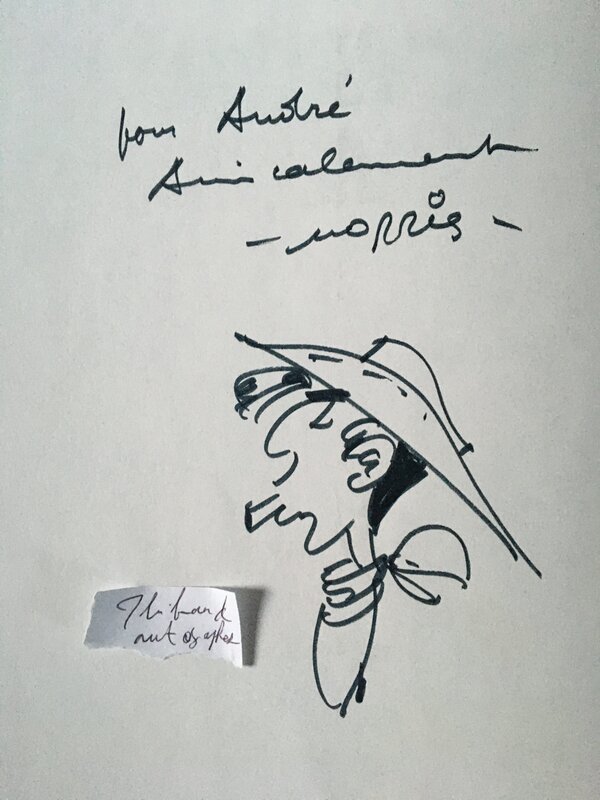 pour André
Amicalement
- MORRIS -
Thibaud
autographes